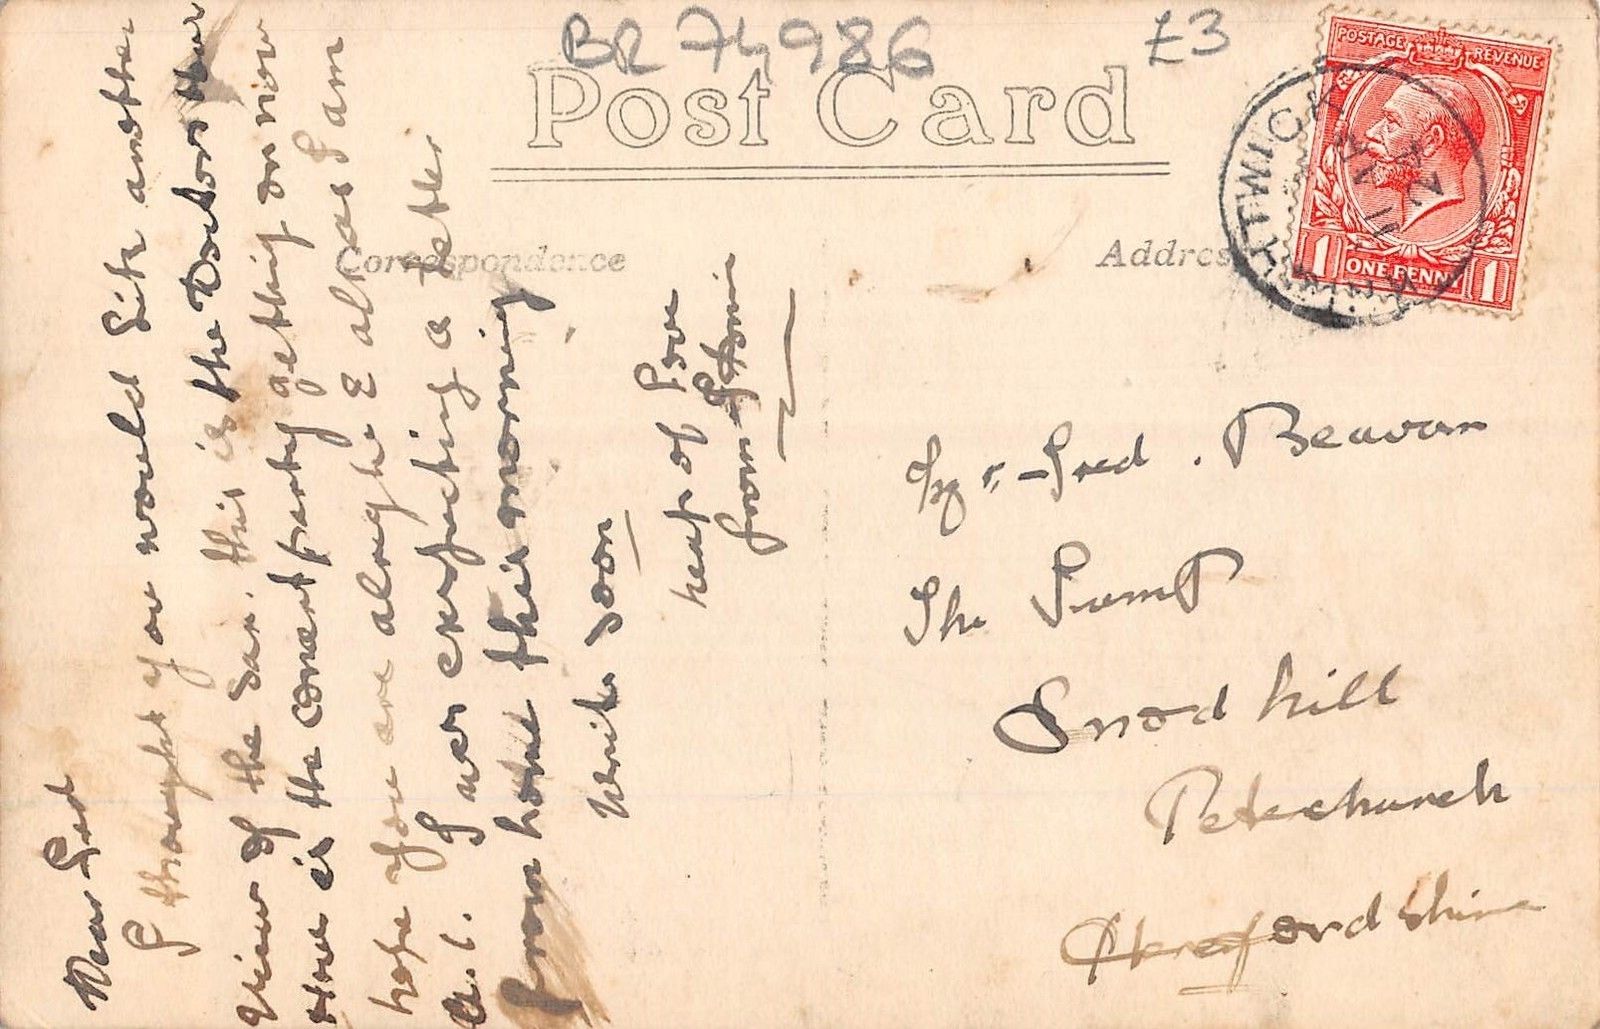 BR 74986
£3
Post Card
Correspondence
Address
POSTAGE REVENUE
1 ONE PENNY 1
11 AP
24
Dear Fred
I thought you would Like another
View of the Dam. this is the Doctors
House is the concert party getting on now
hope you are alright & as I am
I was expecting a letter
from home this morning
Write soon
heap of Love
from
Mr Fred. Beavan
The Pump
Snodhill
Peterchurch
Herefordshire